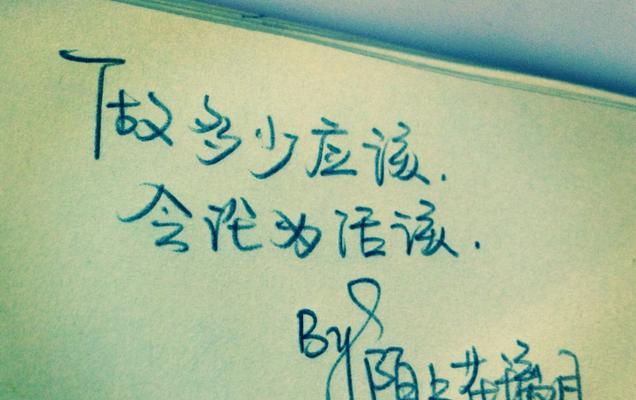 做多少应该.
会沦为活该.
By 陌上